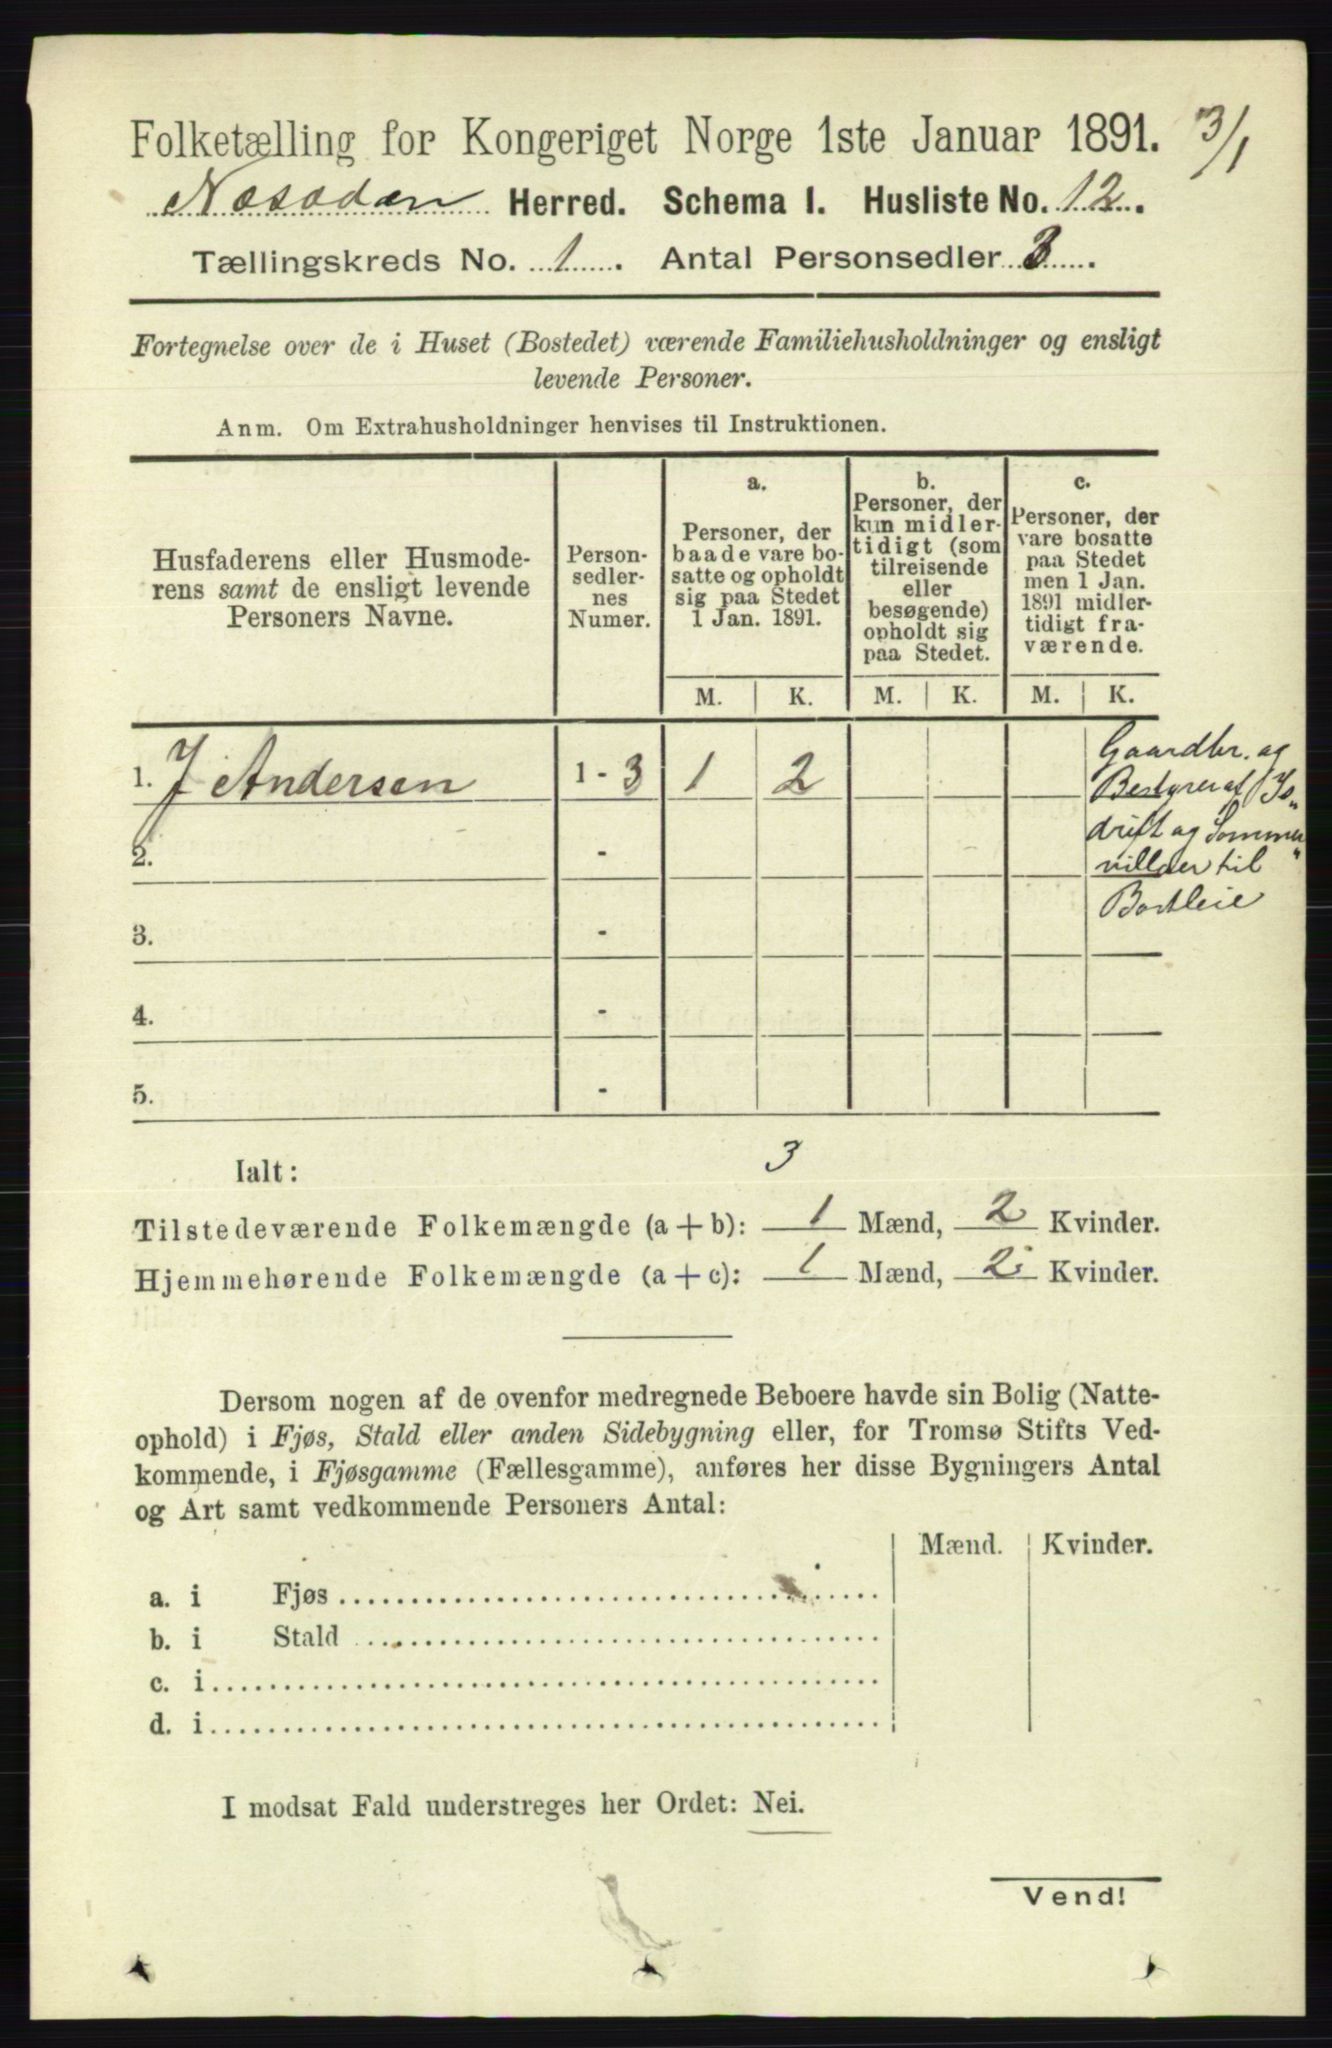 Folketælling for Kongeriget Norge 1ste Januar 1891. 3/1
Næsodden Herred. Schema I. Husliste No. 12.
Tællingskreds No. 1. Antal Personsedler 3.
Fortegnelse over de i Huset (Bostedet) værende Familiehusholdninger og ensligt
levende Personer.
Anm. Om Extrahusholdninger henvises til Instruktionen.
Husfaderens eller Husmode-
rens samt de ensligt levende
Personers Navne.
Person-
sedler-
nes
Numer.
a.
Personer, der
baade vare bo-
satte og opholdt
sig paa Stedet
1 Jan. 1891.
b.
Personer, der
kun midler-
tidigt (som
tilreisende
eller
besøgende)
opholdt sig
paa Stedet.
c.
Personer, der
vare bosatte
paa Stedet
men 1 Jan.
1891 midler-
tidigt fra-
værende.
M. K. M. K. M. K.
1. J Andersen 1 - 3 1 2
Gaardbr. og
Bestyrer af Is„
drift og Sommer„
villaer til
Bortleie
2. -
3. -
4. -
5. -
Ialt: 3
Tilstedeværende Folkemængde (a + b): 1 Mænd, 2 Kvinder.
Hjemmehørende Folkemængde (a + c): 1 Mænd, 2 Kvinder.
Dersom nogen af de ovenfor medregnede Beboere havde sin Bolig (Natte-
ophold) i Fjøs, Stald eller anden Sidebygning eller, for Tromsø Stifts Ved-
kommende, i Fjøsgamme (Fællesgamme), anføres her disse Bygningers Antal
og Art samt vedkommende Personers Antal:
Mænd. Kvinder.
a. i Fjøs
b. i Stald
c. i
d. i
I modsat Fald understreges her Ordet: Nei.
Vend!